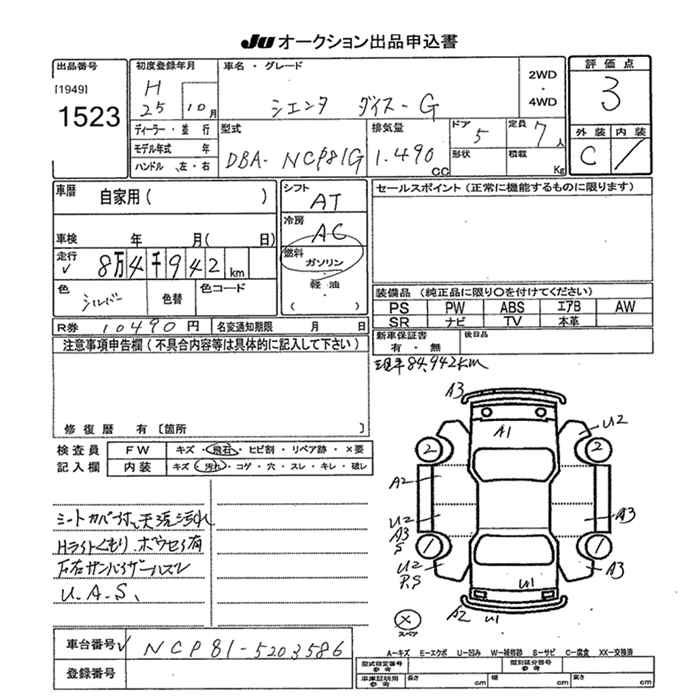 JU オークション出品申込書
出品番号
[1949]
1523
初度登録年月
H
25 10月
車名・グレード
シエンタ ダイス-G
2WD
・
4WD
評価点
3
ディーラー・並行
モデル年式 年
ハンドル 左・右
型式
DBA- NCP81G
排気量
1.490
cc
ドア
5
定員
7人
形状
積載
Kg
外装 内装
C
車歴
自家用( )
シフト
AT
冷房
AC
燃料
ガソリン
・
軽油
( )
セールスポイント(正常に機能するものに限ります)
車検 年 月( 日)
走行
8万4千942km
色
シルバー
色替
色コード
装備品(純正品に限り〇を付けてください)
PS PW ABS エアB AW
SR ナビ TV 本革
R券 10490円
名変通知期限 月 日
新車保証書
有・無
後日品
注意事項申告欄(不具合内容等は具体的に記入して下さい)
現車84,942km
修復歴 有〔箇所 〕
検査員
記入欄
FW キズ・飛石・ヒビ割・リペア跡・×要
内装 キズ・汚れ・コゲ・穴・スレ・キレ・破レ
シートカバー付、天張汚れ
Hライトくもり、ボウセイ有
左右サンバイザー
U.A.S、
A3
A1
U2
2 2
A2
U2
A3
S
A3
1 1
U2
P,S
A3
U1
A2 U1
×
スペア
A-キズ E-エクボ U-凹み W-補修跡 S-サビ C-腐食 XX-交換済
車台番号 NCP81-5203586
登録番号
型式指定番号
参考
類別区分番号
参考
車庫証明用
参考
長さ cm
幅 cm
高さ cm